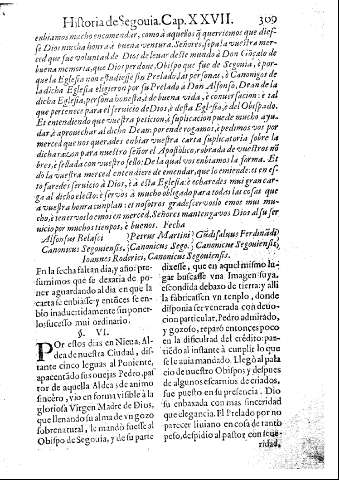 Historia de Segouia. Cap. XXVII. 309
enbiamos mucho encomendar, como à aquellos q̃ querriemos que dies-
se Dios mucha honra è buena ventura. Señores, sepa la vuestra mer-
ced que fue voluntad de Dios de leuar deste mundo à Don Gonçalo de
buena memoria, que Dios perdone, Obispo que fue de Segouia, è por-
que la Eglesia non estudiesse sin Prelado, las personas, è Canonigos de
la dicha Eglesia eligieron por su Prelado a Don Alfonso, Dean de la
dicha Eglesia, persona honesta, è de buena vida, è conuersacion: è tal
que pertenece para el seruicio de Dios, è desta Eglesia, è del Obispado.
Et entendiendo que vuestra peticion, è suplicacion puede mucho ayu-
dar, è aprouechar al dicho Dean: por ende rogamos, è pedimos vos por
merced que nos querades enbiar vuestra carta suplicatoria sobre la
dicha razon para nuestro señor el Apostolico, robrada de vuestros nō
bres, è sellada con vuestro sello: De la qual vos enbiamos la forma. Et do
la vuestra merced entendiere de emendar, que lo emiende: et en es-
to faredes seruicio à Dios, è à esta Eglesia: è echaredes mui gran car-
go al dicho electo: è ser vos à mucho obligado para todas las cosas que
a vuestra honra cunplan: et nosotros gradescervoslo emos mui mu-
cho, è tenervoslo emos en merced. Señores mantengavos Dios al su ser
uicio por muchos tiempos, è buenos. Fecha
Alfonsus Velasci Petrus Martini Gudisaluus Ferdinādi
Canonicus Segouiensis, Canonicus Sego. Canonicus Segouiensis,
Ioannes Roderici, Canonicus Segouiensis.
En la fecha faltan dia, y año: pre-
sumimos que se dexaria de po-
ner aguardando al dia en que la
carta se enbiasse: y entōces se en-
bio inaduertidamente sin poner-
lo: sucesso mui ordinario.
§. VI.
Por estos dias en Nieua, Al-
dea de nuestra Ciudad, dis-
tante cinco leguas al Poniente,
apacentādo sus ouejas Pedro, pas-
tor de aquella Aldea de animo
sincèro, vio en forma visible à la
gloriosa Virgen Madre de Dios,
que llenando su alma de vn gozo
sobrenatural, le mandò fuesse al
Obispo de Segouia, y de su parte
dixesse, que en aquel mismo lu-
gar buscasse vna Imagen suya,
escondida debaxo de tierra; y alli
la fabricassen vn tenplo, donde
dispondria ser venerada con deuo-
cion particular. Pedro admirado,
y gozoso, reparò entonces poco
en la dificultad del crédito: par-
tiendo al instante à cunplir lo que
se le auia mandado. Llegò al pala
cio de nuestro Obispo; y despues
de algunos escarnios de criados,
fue puesto en su presencia. Dio
su enbaxada con mas sinceridad
que elegancia. El Prelado por no
parecer liuiano en cosa de tanto
peso, despidio al pastor con seue-
ridad,